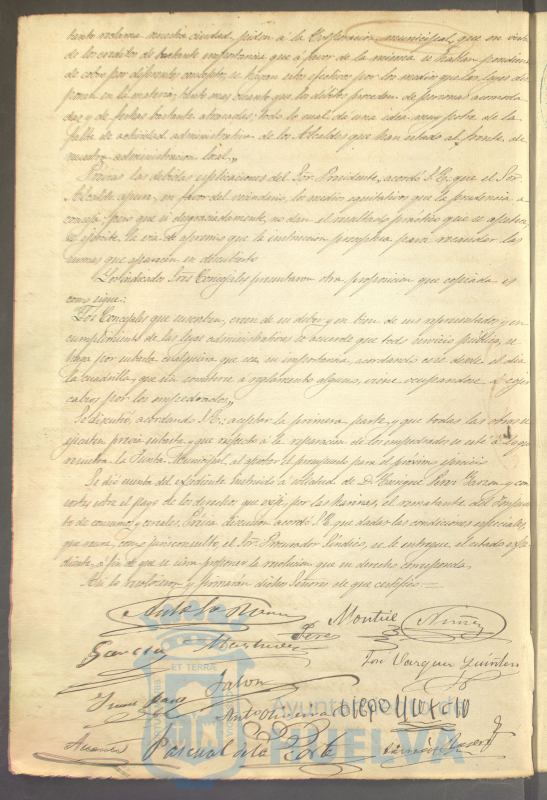 tanto reclama nuestra ciudad, piden á la Corporacion municipal, que en vista
de los creditos de bastante importancia que á favor de la misma se hallan pendientes
de cobro por diferentes conceptos, se hagan estos efectivos por los medios que las leyes dis
ponen en la materia; tanto mas cuanto que los débitos proceden de personas acomoda
das y de fechas bastante atrasadas; todo lo cual dá una idea muy pobre de la
falta de actividad administrativa de los Alcaldes que han estado al frente de
nuestra administracion local.„
Previas las debidas esplicaciones del Sor. Presidente, acordó S.E. que el Sor.
Alcalde apure, en favor del vecindario, los medios equitativos que la prudencia a
conseja; pero que si desgraciadamente, no dan el resultado práctico que se apetece,
se ejercite la via de apremio que la instruccion preceptua para recaudar las
sumas que aparecen en descubierto.
Los indicados Sres. Concejales presentaron otra proposicion que copiada es
como sigue:
"Los Concejales que suscriben, creen de su deber y en bien de sus representados, y en
cumplimiento de las leyes administrativas se acuerde que todo servicio público, se
haga por subasta cualquiera que sea su importancia, acordando cese desde el dia
la cuadrilla, que sin someterse á reglamento alguno, viene ocupandose
por los empedrados„
Se discutió, acordando S.E. aceptar la primera parte, y que todas las obras se
ejecuten previa subasta, y que respecto á la reparacion de los empedrados se esté á lo que
resuelva la Junta Municipal, al aprobar el presupuesto para el próximo ejercicio.
Se dió cuenta del espediente instruido á solicitud de D. Enrique Perez y con
sortes sobre el pago de los derechos que exije, por las harinas, el rematante del Impues
to de consumos y cereales. Previa discusion acordó S.E. que dadas las condiciones especiales,
que reune, como jurisconsulto, el Sor. Procurador Síndico, se le entregue el citado espe
diente, á fin de que se sirva proponer la resolucion que en derecho corresponda.
Asi lo resolvieron y firmarán dichos Señores de que certifico.=
Montiel
Nuñez
Garcia
Martinez
Perez
José Vazquez Quintero
Jalon
Pascual de la Corte
ET TERRÆ
Ayuntamiento de
HUELVA